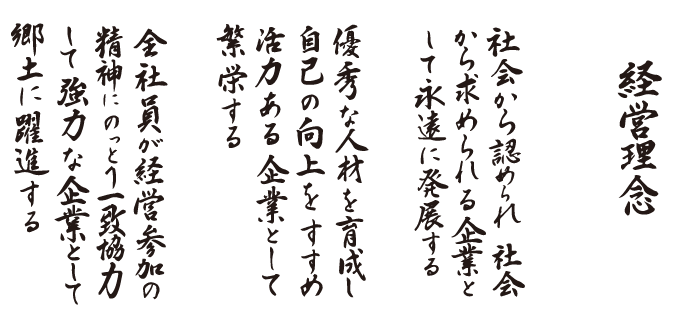 経営理念
社会から認められ 社会
から求められる企業と
して永遠に発展する
優秀な人材を育成し
自己の向上をすすめ
活力ある企業として
繁栄する
全社員が経営参加の
精神にのっとり一致協力
して強力な企業として
郷土に躍進する